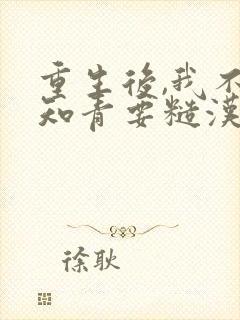 重生後,我不
知青要糙漢
徐耿